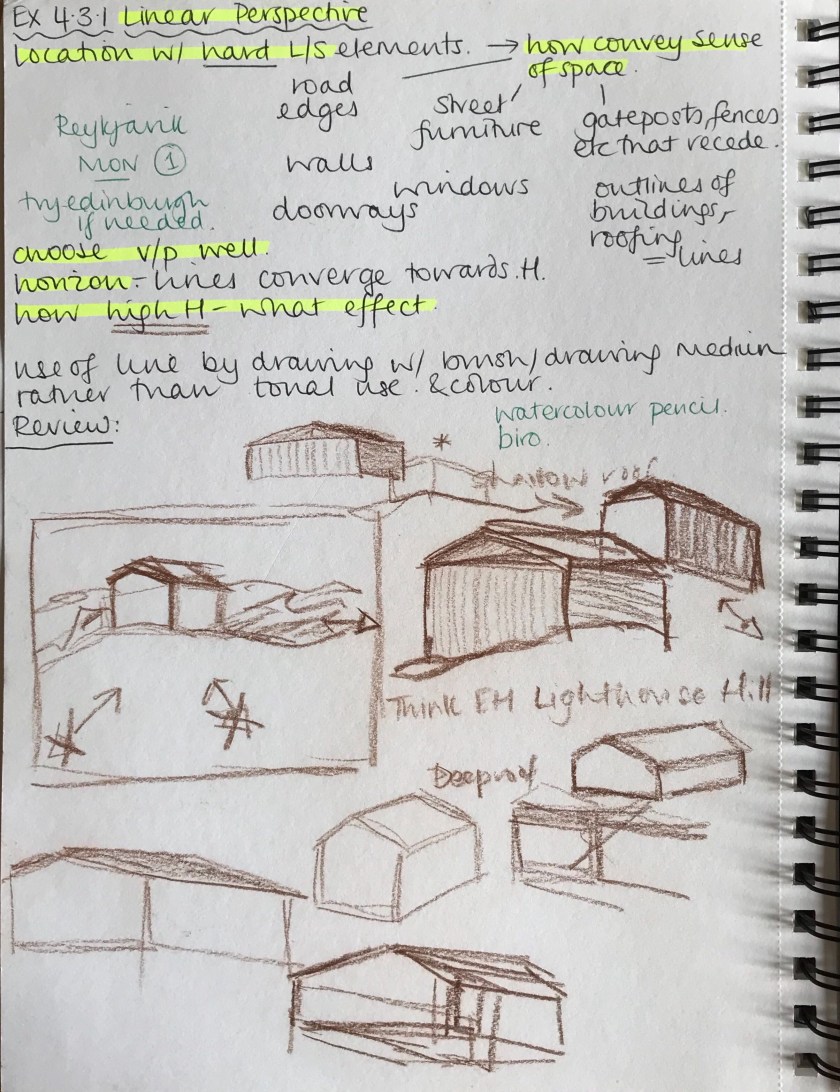 Ex 4.3.1 Linear Perspective
Location w/ hard L/S elements. → how convey sense
of space.
road
edges
street
furniture
gateposts, fences
etc that recede.
Reykjavik
MON ①
try edinburgh
if needed.
walls
windows
doorways
outlines of
buildings,
roofing
= lines
choose v/p well.
horizon - lines converge towards H.
how high H - what effect
use of line by drawing w/ brush/drawing medium
rather than tonal use & colour.
watercolour pencil.
biro.
Review:
*
shallow roof
Think EH Lighthouse Hill
Deep roof